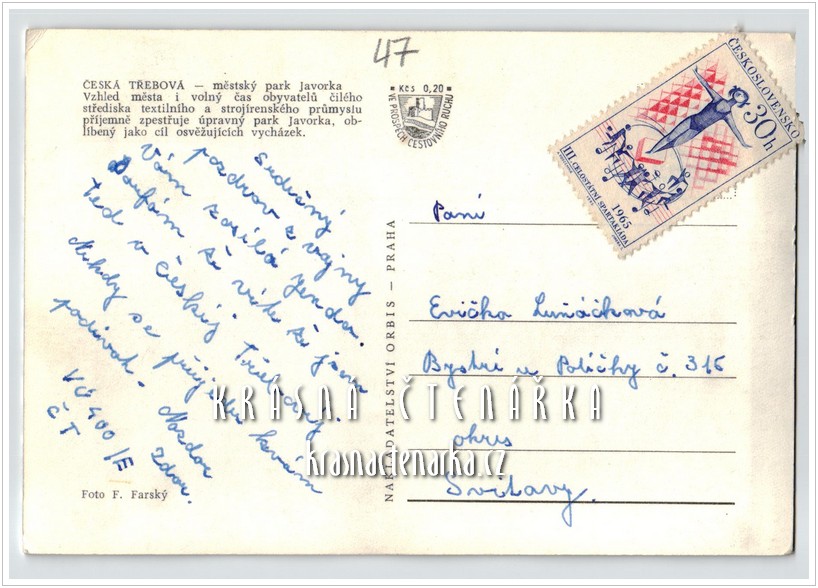 47
ČESKÁ TŘEBOVÁ — městský park Javorka
Vzhled města i volný čas obyvatelů čilého
střediska textilního a strojírenského průmyslu
příjemně zpestřuje úpravný park Javorka, ob-
líbený jako cíl osvěžujících vycházek.
Kčs 0,20
VE PROSPĚCH CESTOVNÍHO RUCHU
ČESKOSLOVENSKO
30h
III. CELOSTÁTNÍ SPARTAKIÁDA
1965
Srdečný
pozdrav z vojny
Vám zasílá Jenda.
Doufám že víte že jsem
teď v České Třebový.
Někdy se přijedu k vám
podívat. Nazdar
zdar.
VÚ 400/E
ČT
Paní
Evička Luňáčková
Bystré u Poličky č. 316
okres
Svitavy.
NAKLADATELSTVÍ ORBIS — PRAHA
KRÁSNÁ ČTENÁŘKA
krasnactenarka.cz
Foto F. Farský